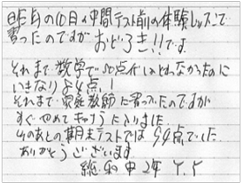 昨年の10月の中間テスト前の体験レッスンで
習ったのですが おどろき!!です
それまで数学で50点代しかとれなかったのに
いきなり84点!
それまで家庭教師に習ってたのですが
すぐやめてキョウになりました
そのあとの期末テストでは94点でした
ありがとうございます
総和中2年 Y.Y